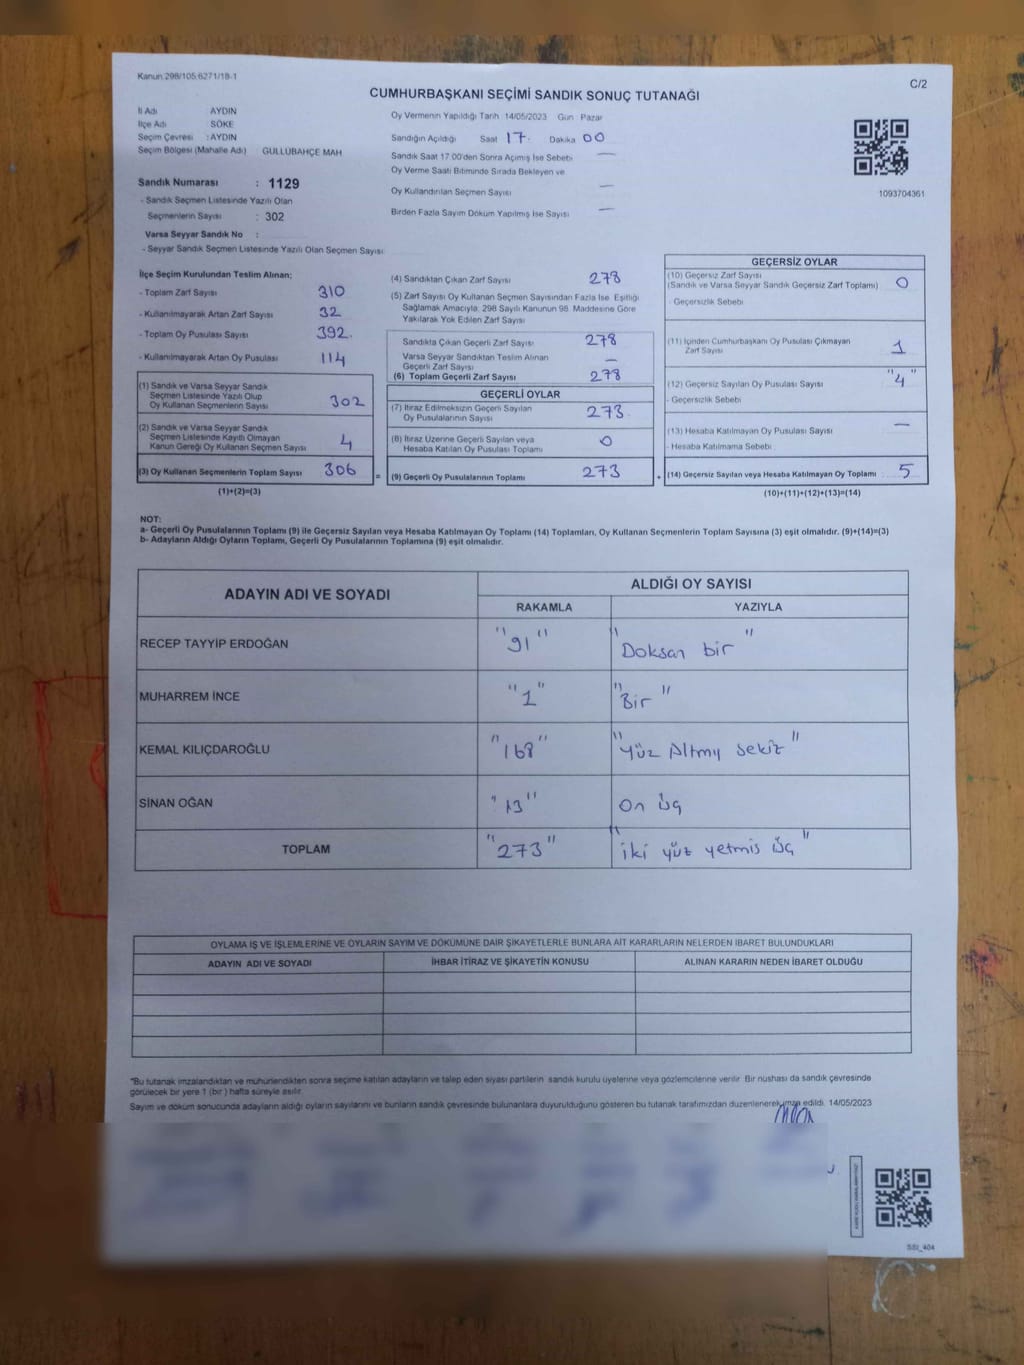 Kanun:298/105;6271/18-1
C/2
CUMHURBAŞKANI SEÇİMİ SANDIK SONUÇ TUTANAĞI
İl Adı AYDIN
İlçe Adı SÖKE
Seçim Çevresi : AYDIN
Seçim Bölgesi (Mahalle Adı) : GÜLLÜBAHÇE MAH
Sandık Numarası : 1129
- Sandık Seçmen Listesinde Yazılı Olan
Seçmenlerin Sayısı : 302
Varsa Seyyar Sandık No :
- Seyyar Sandık Seçmen Listesinde Yazılı Olan Seçmen Sayısı:
Oy Vermenin Yapıldığı Tarih 14/05/2023 Gün Pazar
Sandığın Açıldığı Saat 17 Dakika 00
Sandık Saat 17.00'den Sonra Açılmış İse Sebebi —
Oy Verme Saati Bitiminde Sırada Bekleyen ve
Oy Kullandırılan Seçmen Sayısı —
Birden Fazla Sayım Döküm Yapılmış İse Sayısı —
1093704361
İlçe Seçim Kurulundan Teslim Alınan:
- Toplam Zarf Sayısı 310
- Kullanılmayarak Artan Zarf Sayısı 32
- Toplam Oy Pusulası Sayısı 392
- Kullanılmayarak Artan Oy Pusulası 114
(1) Sandık ve Varsa Seyyar Sandık
Seçmen Listesinde Yazılı Olup
Oy Kullanan Seçmenlerin Sayısı 302
(2) Sandık ve Varsa Seyyar Sandık
Seçmen Listesinde Kayıtlı Olmayan
Kanun Gereği Oy Kullanan Seçmen Sayısı 4
(3) Oy Kullanan Seçmenlerin Toplam Sayısı 306 =
(1)+(2)=(3)
(4) Sandıktan Çıkan Zarf Sayısı 278
(5) Zarf Sayısı Oy Kullanan Seçmen Sayısından Fazla İse, Eşitliği
Sağlamak Amacıyla, 298 Sayılı Kanunun 98. Maddesine Göre
Yakılarak Yok Edilen Zarf Sayısı
Sandıkta Çıkan Geçerli Zarf Sayısı 278
Varsa Seyyar Sandıktan Teslim Alınan
Geçerli Zarf Sayısı —
(6) Toplam Geçerli Zarf Sayısı 278
GEÇERLİ OYLAR
(7) İtiraz Edilmeksizin Geçerli Sayılan
Oy Pusulalarının Sayısı 273
(8) İtiraz Üzerine Geçerli Sayılan veya
Hesaba Katılan Oy Pusulası Toplamı 0
(9) Geçerli Oy Pusulalarının Toplamı 273 +
GEÇERSİZ OYLAR
(10) Geçersiz Zarf Sayısı
(Sandık ve Varsa Seyyar Sandık Geçersiz Zarf Toplamı) 0
- Geçersizlik Sebebi
(11) İçinden Cumhurbaşkanı Oy Pusulası Çıkmayan
Zarf Sayısı 1
(12) Geçersiz Sayılan Oy Pusulası Sayısı "4"
- Geçersizlik Sebebi
(13) Hesaba Katılmayan Oy Pusulası Sayısı —
- Hesaba Katılmama Sebebi
(14) Geçersiz Sayılan veya Hesaba Katılmayan Oy Toplamı 5
(10)+(11)+(12)+(13)=(14)
NOT:
a- Geçerli Oy Pusulalarının Toplamı (9) ile Geçersiz Sayılan veya Hesaba Katılmayan Oy Toplamı (14) Toplamları, Oy Kullanan Seçmenlerin Toplam Sayısına (3) eşit olmalıdır. (9)+(14)=(3)
b- Adayların Aldığı Oyların Toplamı, Geçerli Oy Pusulalarının Toplamına (9) eşit olmalıdır.
ADAYIN ADI VE SOYADI
ALDIĞI OY SAYISI
RAKAMLA YAZIYLA
RECEP TAYYİP ERDOĞAN "91" "Doksan bir"
MUHARREM İNCE "1" "Bir"
KEMAL KILIÇDAROĞLU "168" "Yüz Altmış sekiz"
SİNAN OĞAN "13" On üç
TOPLAM "273" "iki yüz yetmis üç"
OYLAMA İŞ VE İŞLEMLERİNE VE OYLARIN SAYIM VE DÖKÜMÜNE DAİR ŞİKAYETLERLE BUNLARA AİT KARARLARIN NELERDEN İBARET BULUNDUKLARI
ADAYIN ADI VE SOYADI İHBAR İTİRAZ VE ŞİKAYETİN KONUSU ALINAN KARARIN NEDEN İBARET OLDUĞU
"Bu tutanak imzalandıktan ve mühürlendikten sonra seçime katılan adayların ve talep eden siyasi partilerin sandık kurulu üyelerine veya gözlemcilerine verilir. Bir nüshası da sandık çevresinde
görülecek bir yere 1 (bir) hafta süreyle asılır.
Sayım ve döküm sonucunda adayların aldığı oyların sayılarını ve bunların sandık çevresinde bulunanlara duyurulduğunu gösteren bu tutanak tarafımızdan düzenlenerek imza edildi. 14/05/2023
SSI_404